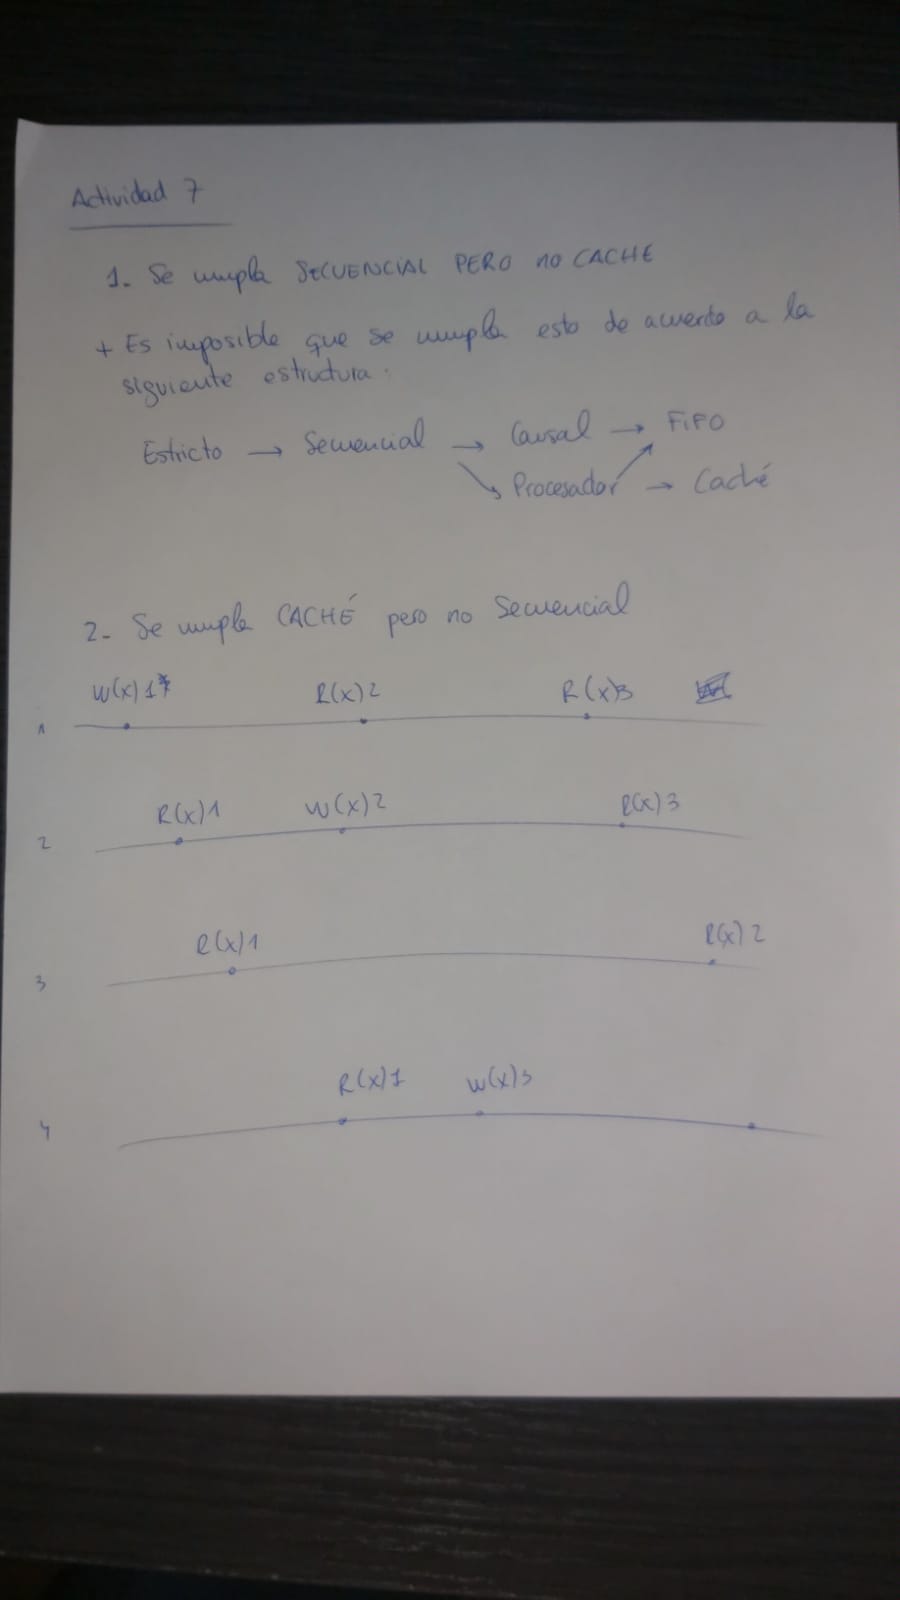 Actividad 7
1. Se cumpla SECUENCIAL PERO no CACHE
+ Es imposible que se cumpla esto de acuerdo a la
siguiente estructura.
Estricto → Secuencial → Causal → FiFO
↘ Procesador ↗ → Caché
2- Se cumpla CACHÉ pero no Secuencial
W(x)1 R(x)2 R(x)3
1
R(x)1 W(x)2 R(x)3
2
R(x)1 R(x)2
3
R(x)1 W(x)3
4